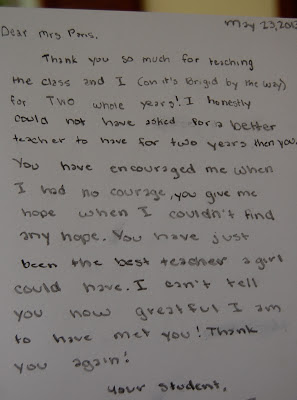 May 23, 201
Dear Mrs
Thank you so much for teaching
the class and I (oh it's Brigid by the way)
for TWO whole years! I honestly
could not have asked for a better
teacher to have for two years then you.
You have encouraged me when
I had no courage, you give me
hope when I couldn't find
any hope. You have just
been the best teacher a girl
could have. I can't tell
you how greatful I am
to have met you! Thank
you again!
Your student,